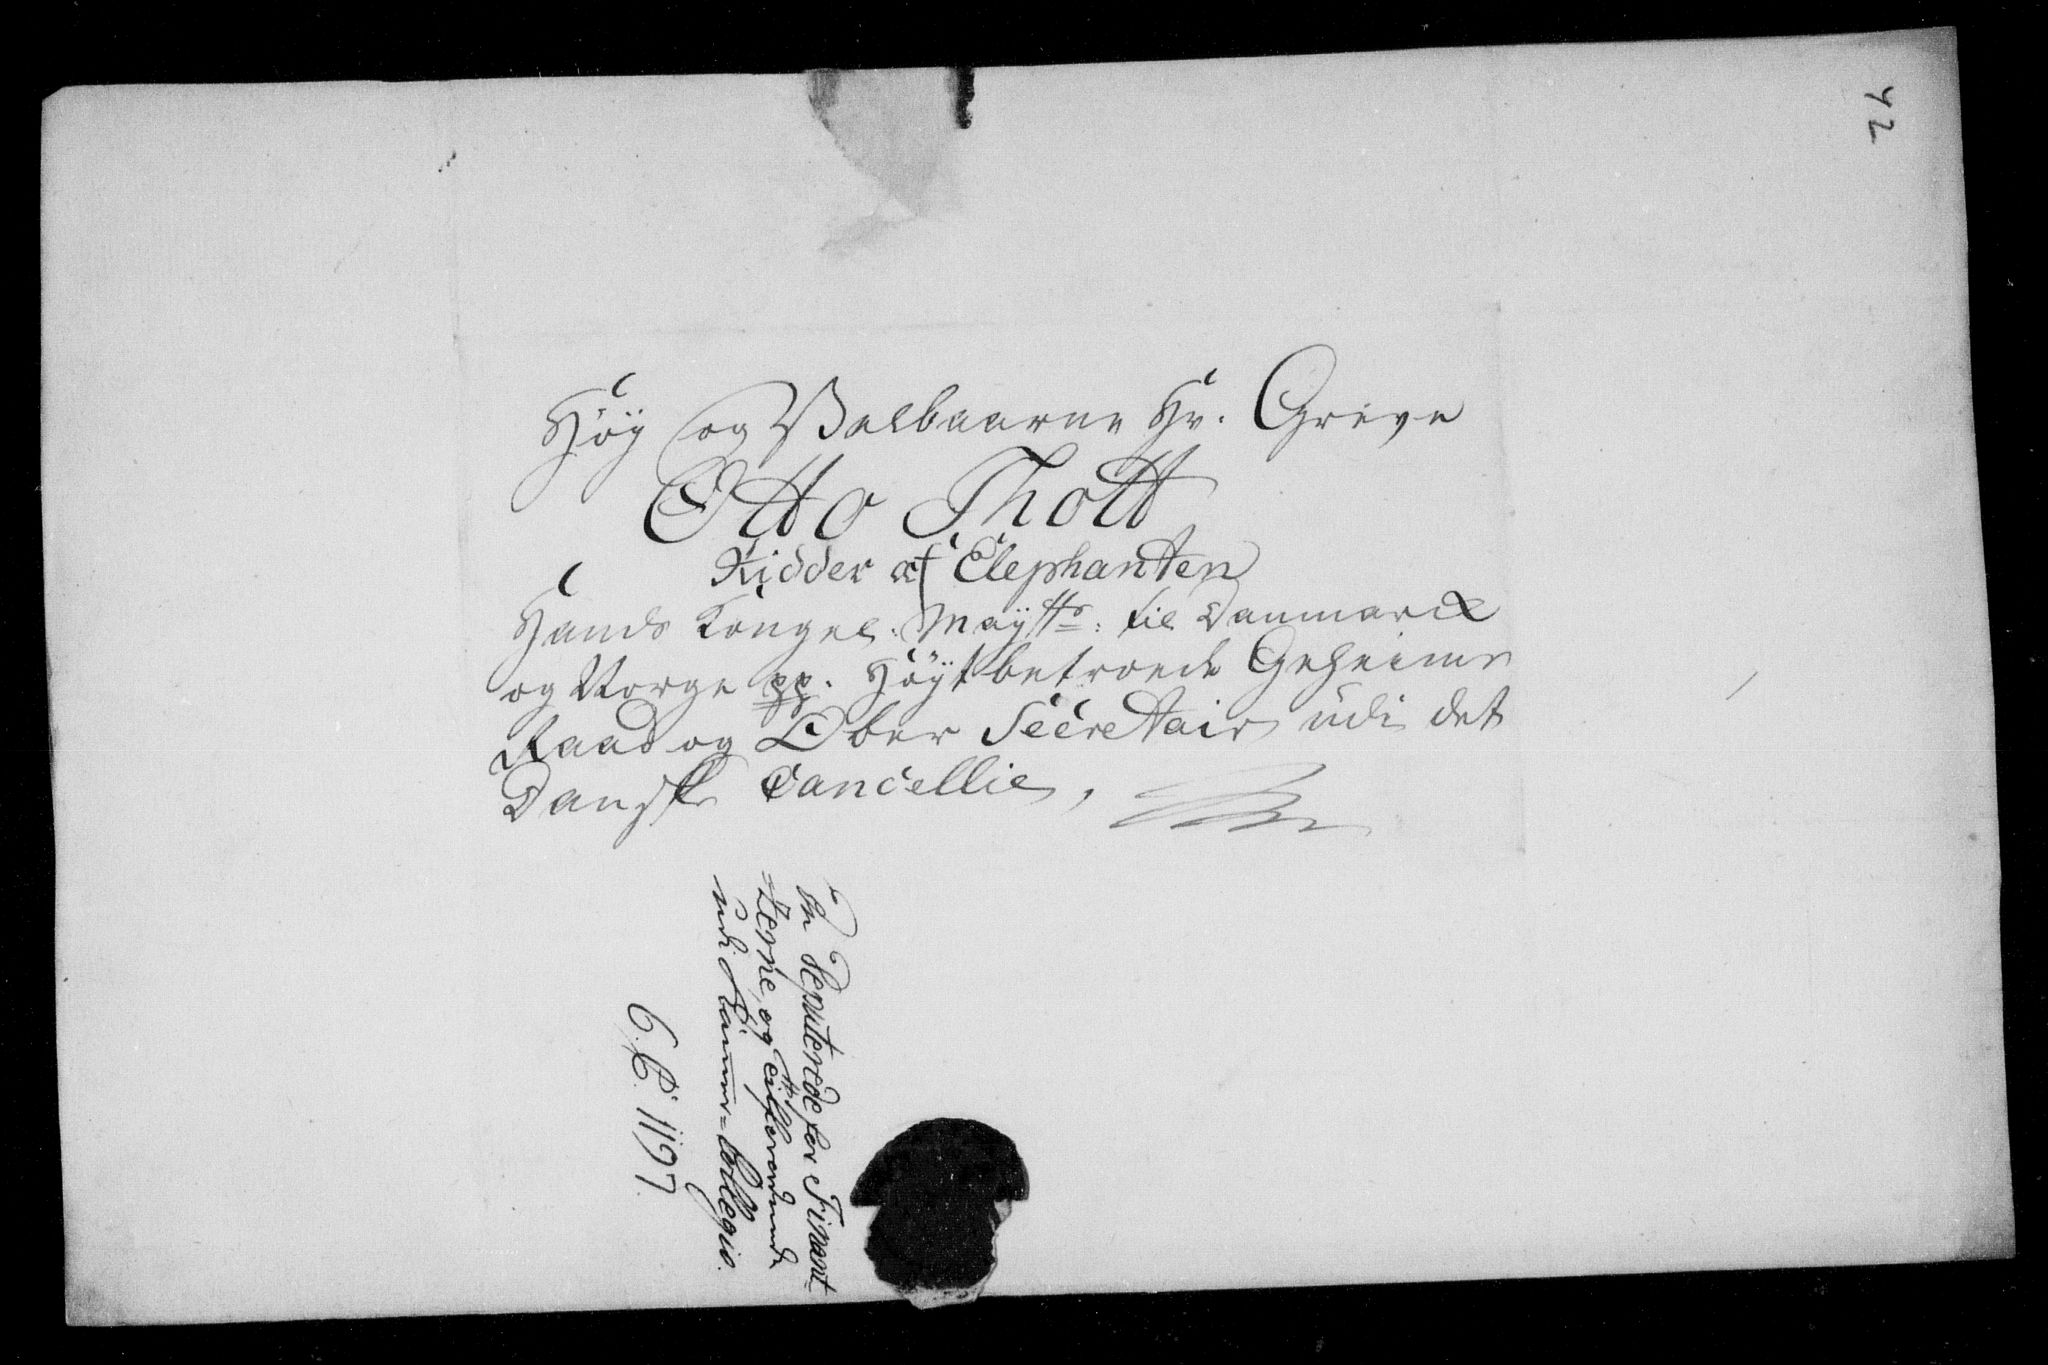 42
Høÿ og Velbaarne Hr. Greve
Otto Thott
Ridder af Elephanten
Hands Kongel: Maÿtts: til Danmarck
og Norge pp. Høÿtbetroede Geheime
Raad og Ober Secretair udi det
Danske Cancellie,
De Deputerede for Finant-
-zerne, og
udi Kammer-Collegio.
1197.